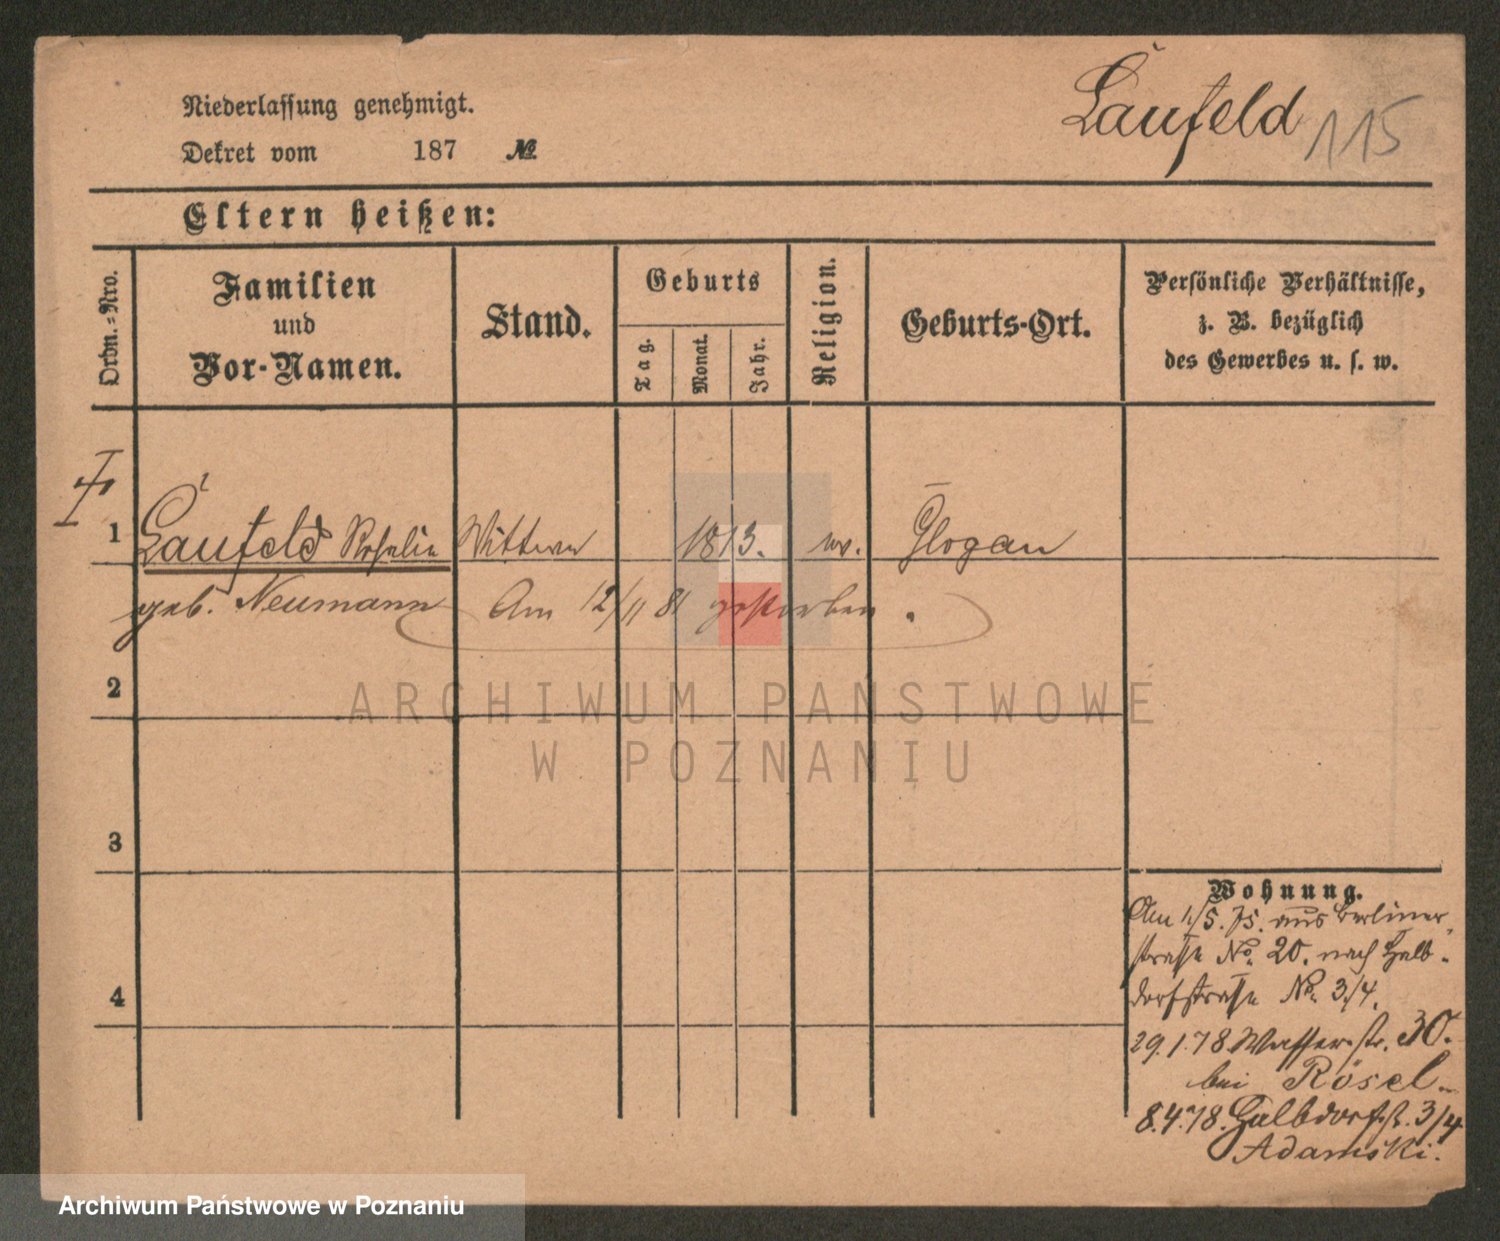 Laufeld 115
Niederlassung genehmigt.
Dekret vom 187 №
Eltern heißen:
Ordn.=Nro.
Familien
und
Vor-Namen.
Stand.
Geburts
Tag.
Monat.
Jahr.
Religion.
Geburts-Ort.
Persönliche Verhältnisse,
z. B. bezüglich
des Gewerbes u. s. w.
1 Laufeld Rosalie Wittwe 1813. ev. Glogau
geb. Neumann Am 12/11 81 gestorben.
2
ARCHIWUM PAŃSTWOWE
W POZNANIU
3
Wohnung.
Am 1/5. 75. aus Berliner-
straße No. 20. nach Halb-
dorfstraße No. 3/4.
4
29.1.78 Wasserstr. 30.
bei Rösel
8.4.78. Halbdorfstr. 3/4
Adamski.
Archiwum Państwowe w Poznaniu